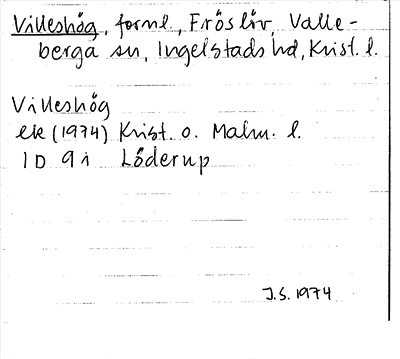 Villeshög, forml, Fröslöv, Valle-
berga sn, Ingelstads hd, Krist. l.
Villeshög
ek (1974) Krist. o. Malm. l.
1D 9i Löderup
J.S. 1974